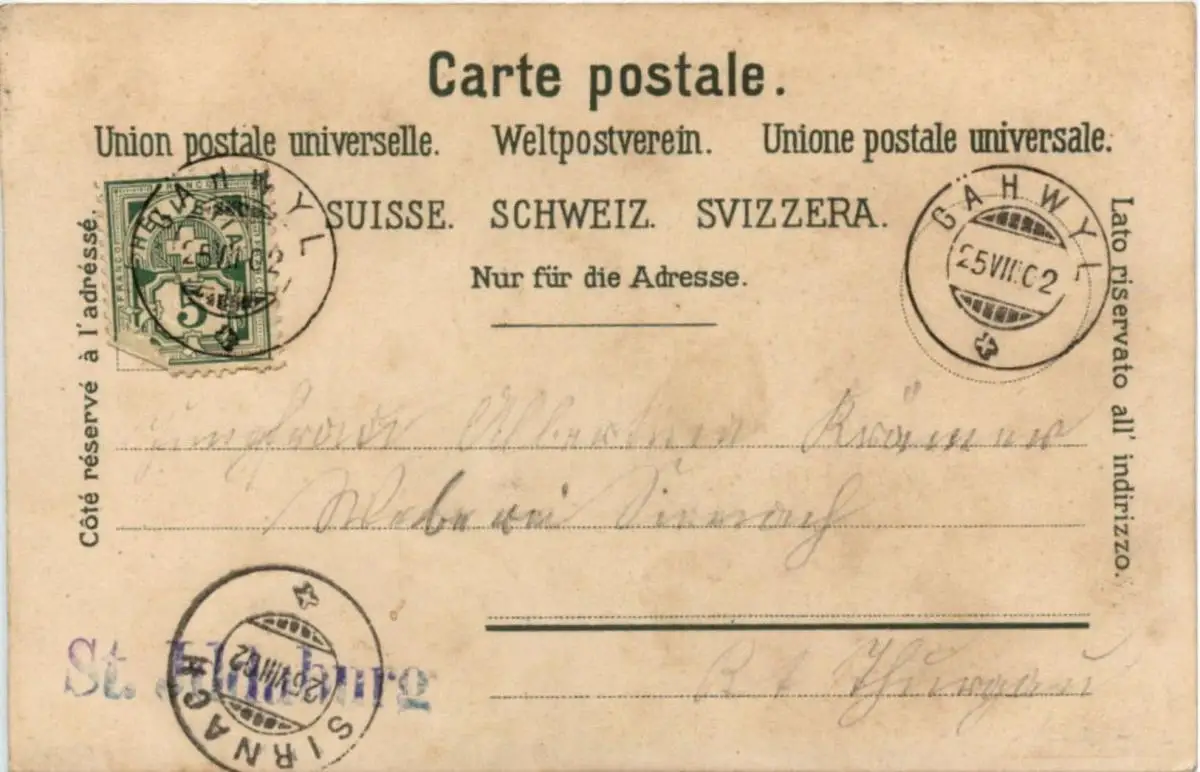 Carte postale.
Union postale universelle. Weltpostverein. Unione postale universale.
SUISSE. SCHWEIZ. SVIZZERA.
Nur für die Adresse.
Côté réservé à l'adréssé.
Lato riservato all' indirizzo.
HELVETIA
FRANCO
5
GÄHWYL
25 VIII 02
GÄHWYL
25 VIII 02
Jungfrau Albertine Krämer
Weberei Sirnach
Kt Thurgau
St. Iddaburg
SIRNACH
25 VIII 02